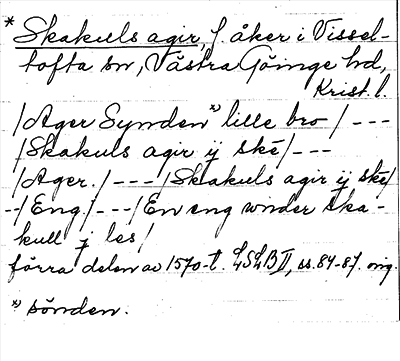 * Skakuls agir, f. åker i Vissel-
tofta sn, Västra Göinge hd,
Krist. l.
/Ager Synden *) lille bro/ ---
/Skakuls agir ij skē/ ---
/Ager./ --- /Skakuls agir ij skē/
--/Eng./ --- /En eng wnder ska-
kull j les/
förra delen av 1570-t. LSLB II, ss. 84-87. orig.
*) sönden.